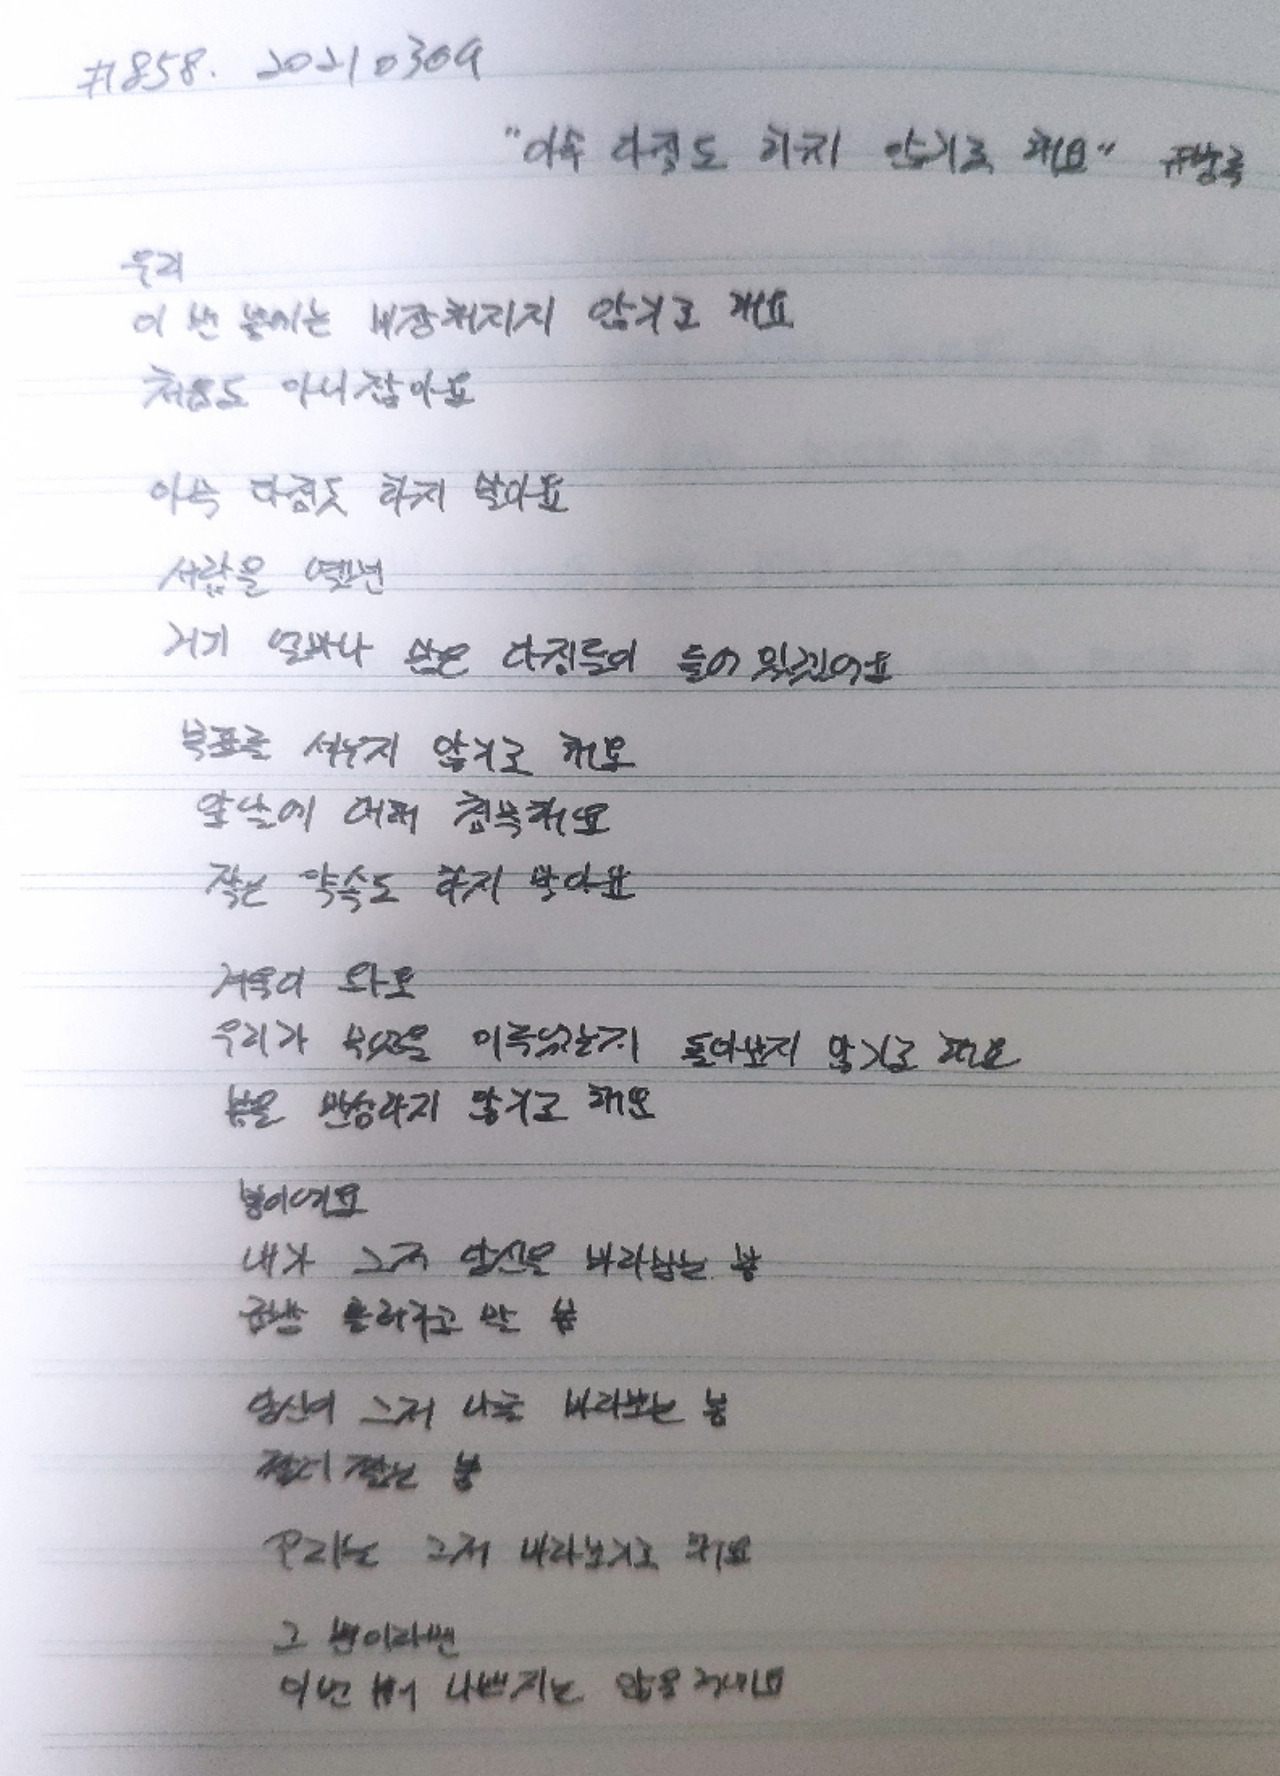 #1858. 20210309
"아속 다짐도 하지 않기로 해요"
우리
이 번 봄에는 비장해지지 않기로 해요
처음도 아니잖아요
아무 다짐도 하지 말아요
서랍을 열면
거기 얼마나 많은 다짐들이 들어 있겠어요
목표를 세우지 않기로 해요
앞날에 대해 침묵해요
작은 약속도 하지 말아요
겨울이 와도
우리가 무엇을 이루었는지 돌아보지 않기로 해요
봄을 반성하지 않기로 해요
봄이에요
내가 그저 당신을 바라보는 봄
금방 흘러가고 말 봄
당신이 그저 나를 바라보는 봄
짧디 짧은 봄
우리는 그저 바라보기로 해요
그 뿐이라면
이번 봄이 나쁘지는 않을 거예요